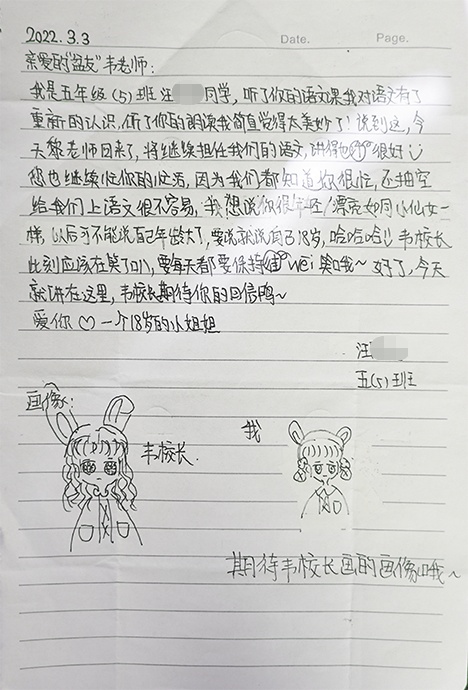 2022.3.3
Date.
Page.
亲爱的“盆友”韦老师:
我是五年级(5)班汪 同学,听了你的语文课我对语文有了
重新的认识,听了你的朗读我简直觉得太美妙了!说到这,今
天黎老师回来了,将继续担任我们的语文,讲得也很好
您也继续忙你的忙活,因为我们都知道你很忙,还抽空
给我们上语文很不容易,我想说你很年轻!漂亮如同小仙女一
样,以后可不能说自己年龄大了,要说就说自己18岁,哈哈哈!韦校长
此刻应该在笑了叭,要每天都要保持 wei 笑哦~ 好了,今天
就讲在这里,韦校长期待你的回信鸭~
爱你♡一个18岁的小姐姐
汪
五(5)班
画像:
韦校长.
我
期待韦校长画的画像哦~